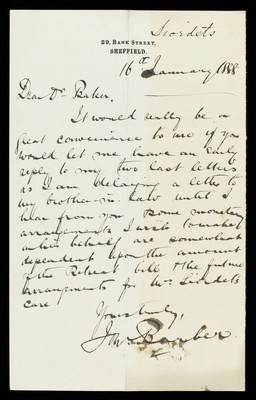 Scordets
29, BANK STREET,
SHEFFIELD.
16th January 1888
Dear Dr Baker,
It would really be a
great convenience to me if you
would let me have an early
reply to my two last letters
as I am delaying a letter to
my brother-in-law until I
hear from you some monetary
arrangements I wish to make
on her behalf are somewhat
dependent upon the amount
of the Retreat bill & the future
arrangements for Mrs Scordets
care.
Yours truly,
Barber